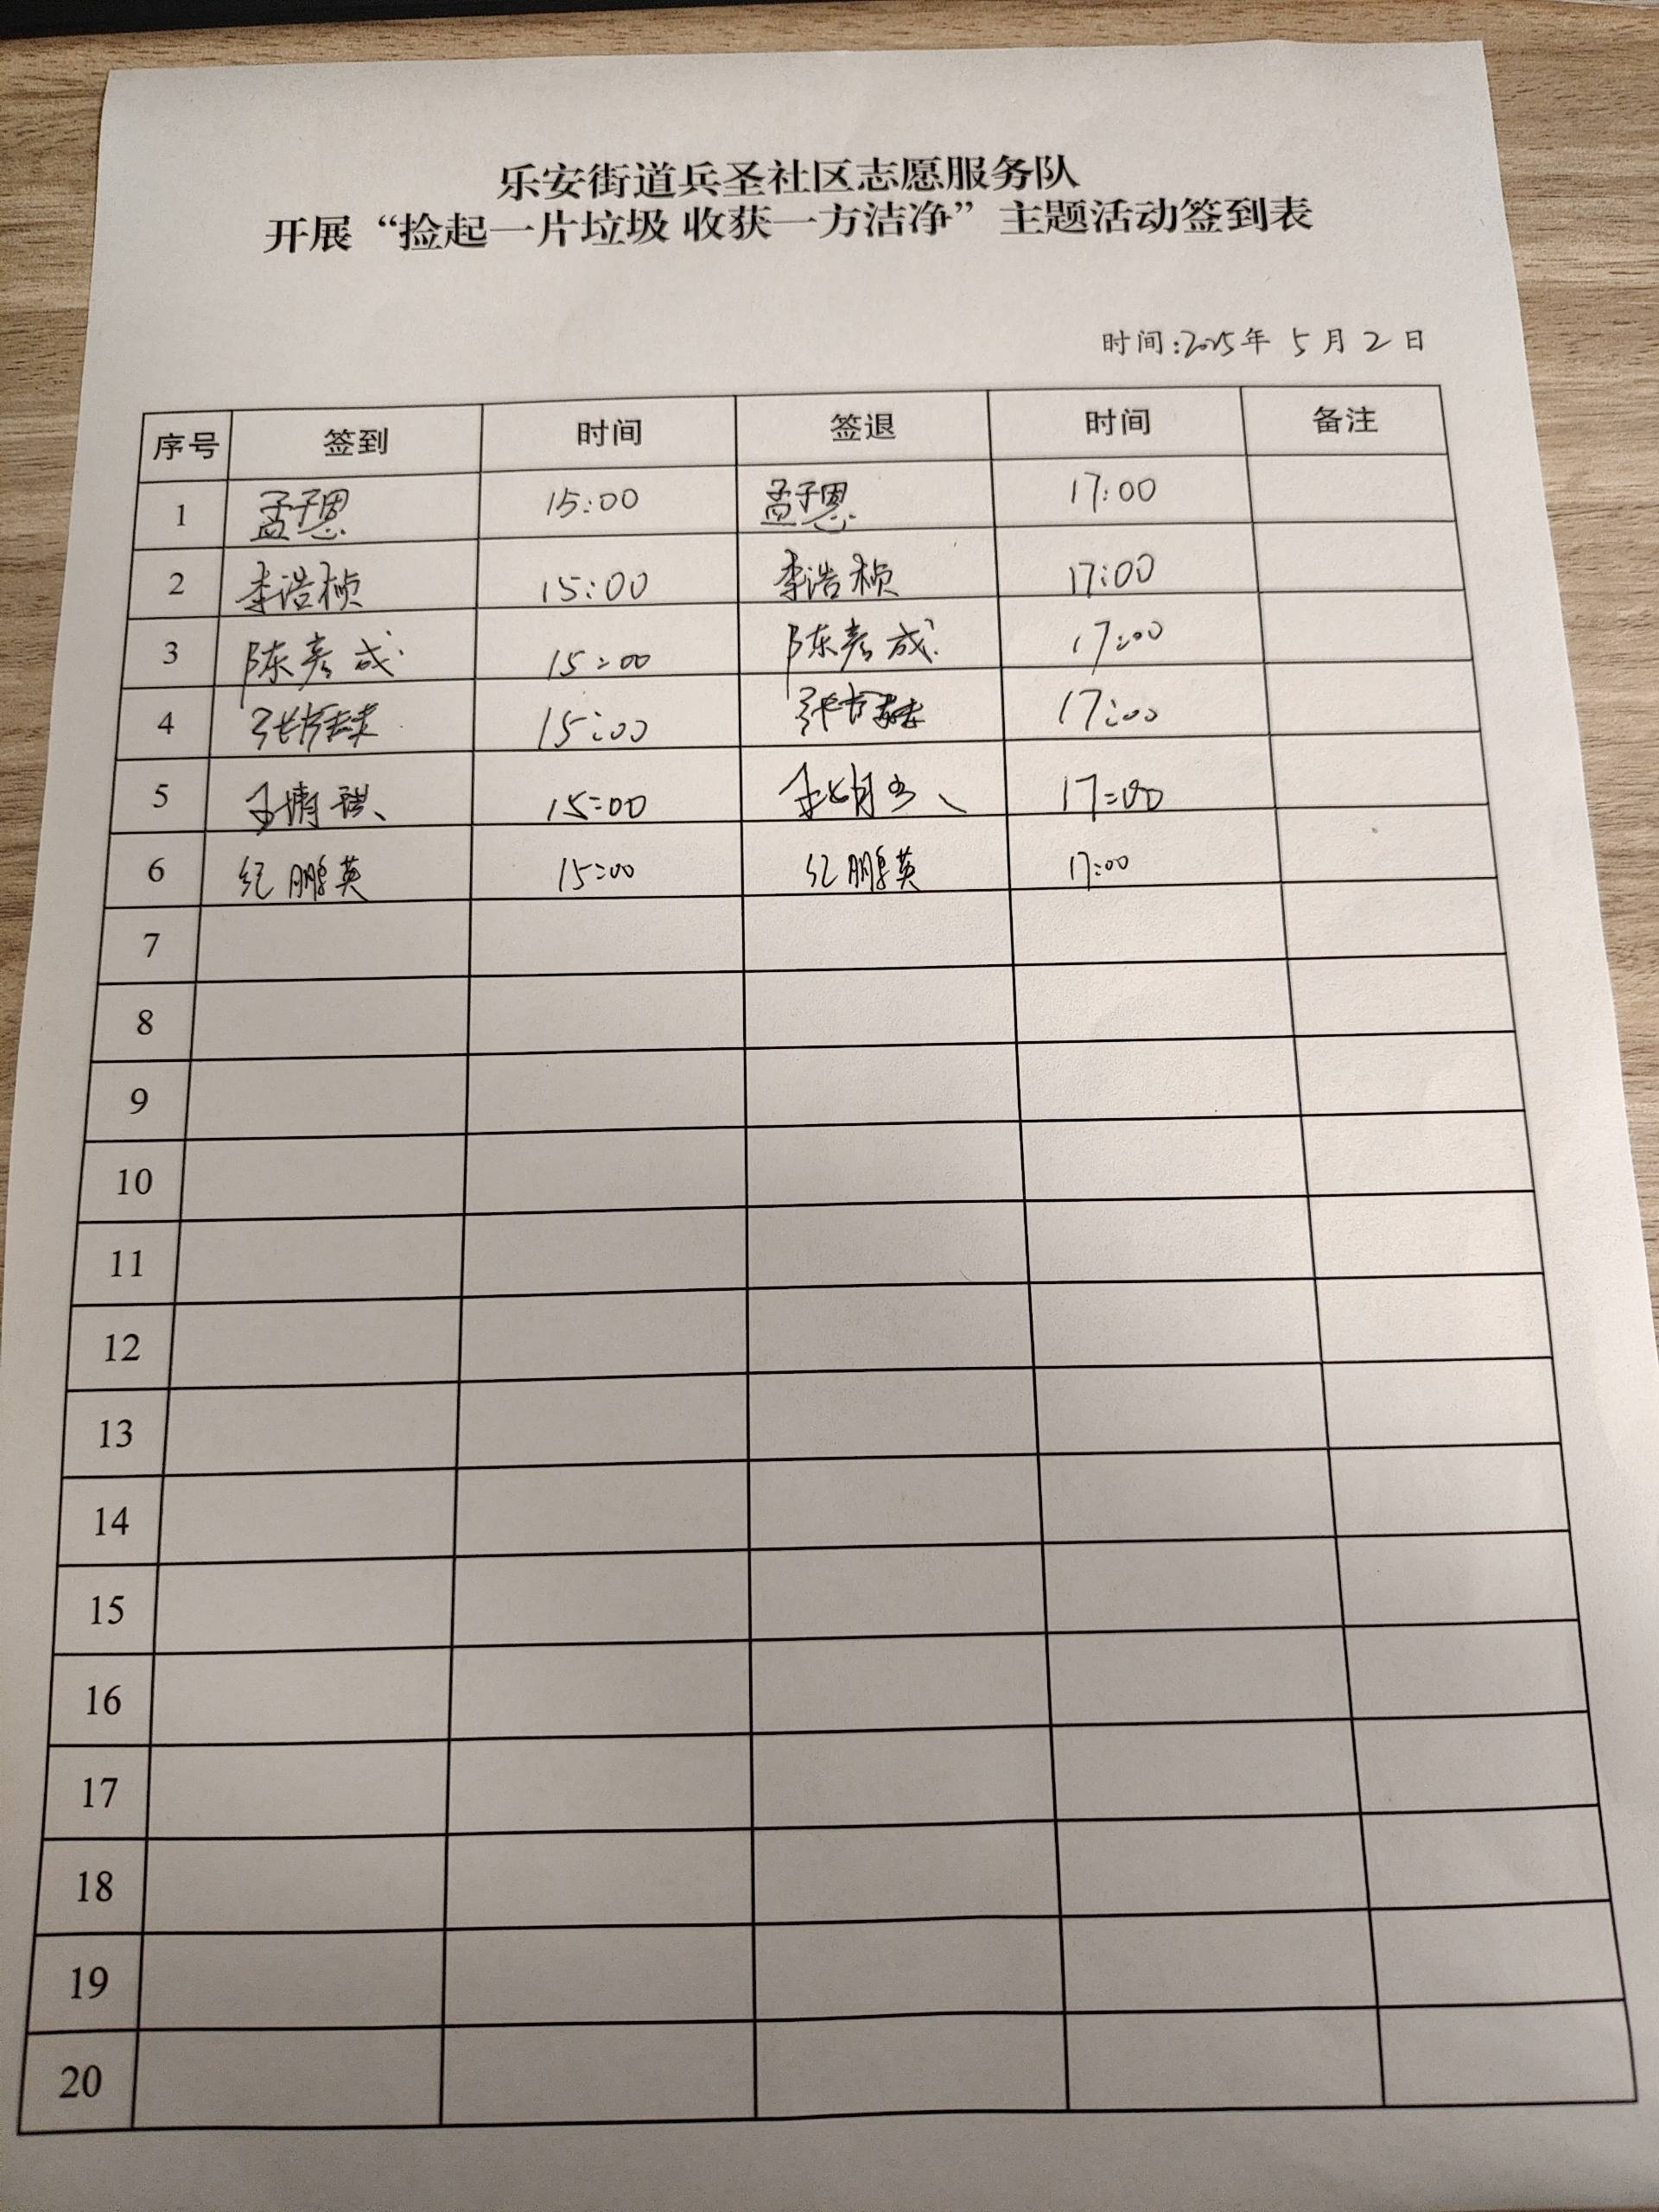 乐安街道兵圣社区志愿服务队
开展“捡起一片垃圾 收获一方洁净”主题活动签到表
时间:2025年 5月2日
序号 签到 时间 签退 时间 备注
1 孟子恩 15:00 孟子恩 17:00
2 李浩桢 15:00 李浩桢 17:00
3 陈彦成 15:00 陈彦成 17:00
4 15:00 17:00
5 15:00 17:00
6 纪鹏英 15:00 纪鹏英 17:00
7
8
9
10
11
12
13
14
15
16
17
18
19
20